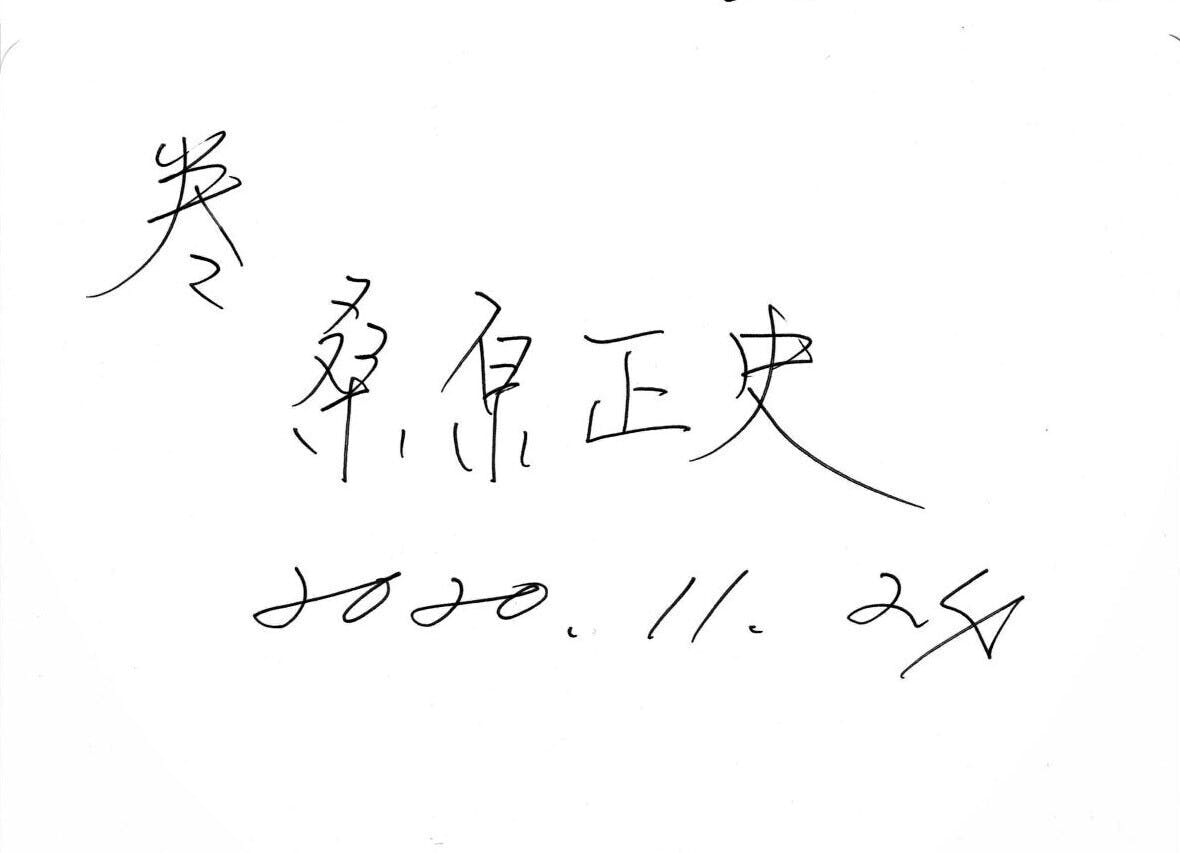 桑原正史
2020.11.24